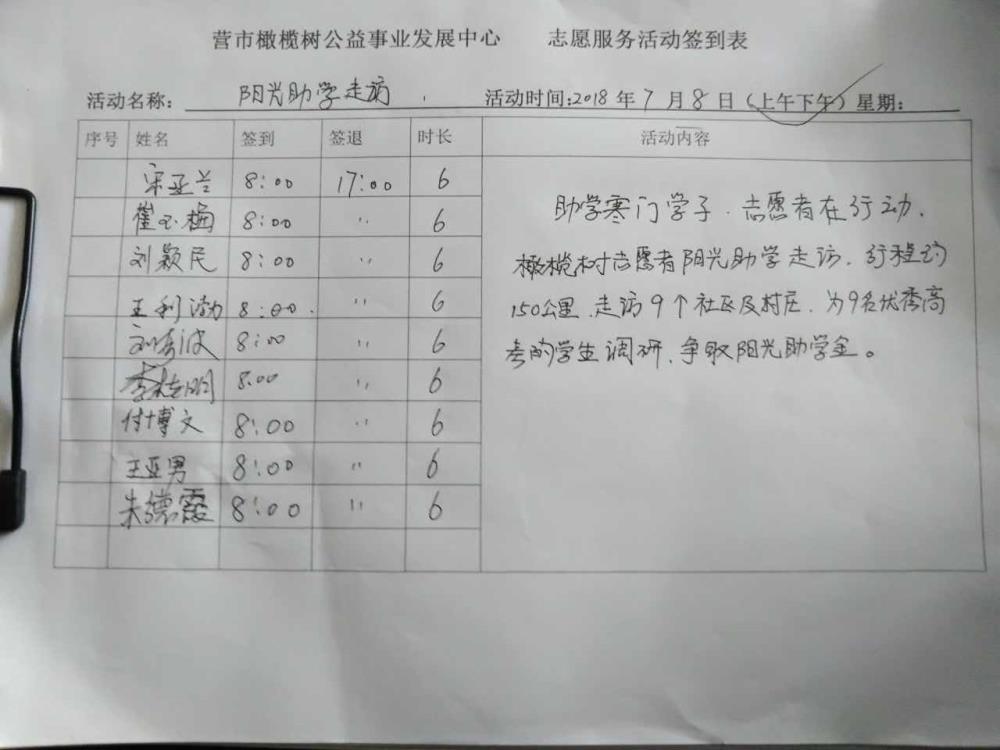 营市橄榄树公益事业发展中心 志愿服务活动签到表
活动名称: 阳光助学走访. 活动时间:2018年7月8日(上午下午)星期:
序号 姓名 签到 签退 时长 活动内容
宋亚兰 8:00 17:00 6
崔玉梅 8:00 〃 6
刘颖民 8:00 〃 6
王利渤 8:00. 〃 6
刘秀波 8:00 〃 6
李志明 8:00 〃 6
付博文 8:00 〃 6
王亚男 8:00 〃 6
朱德霞 8:00 〃 6
助学寒门学子.志愿者在行动.
橄榄树志愿者阳光助学走访.行程约
150公里.走访9个社区及村庄.为9名优秀高
考的学生调研,争取阳光助学金。